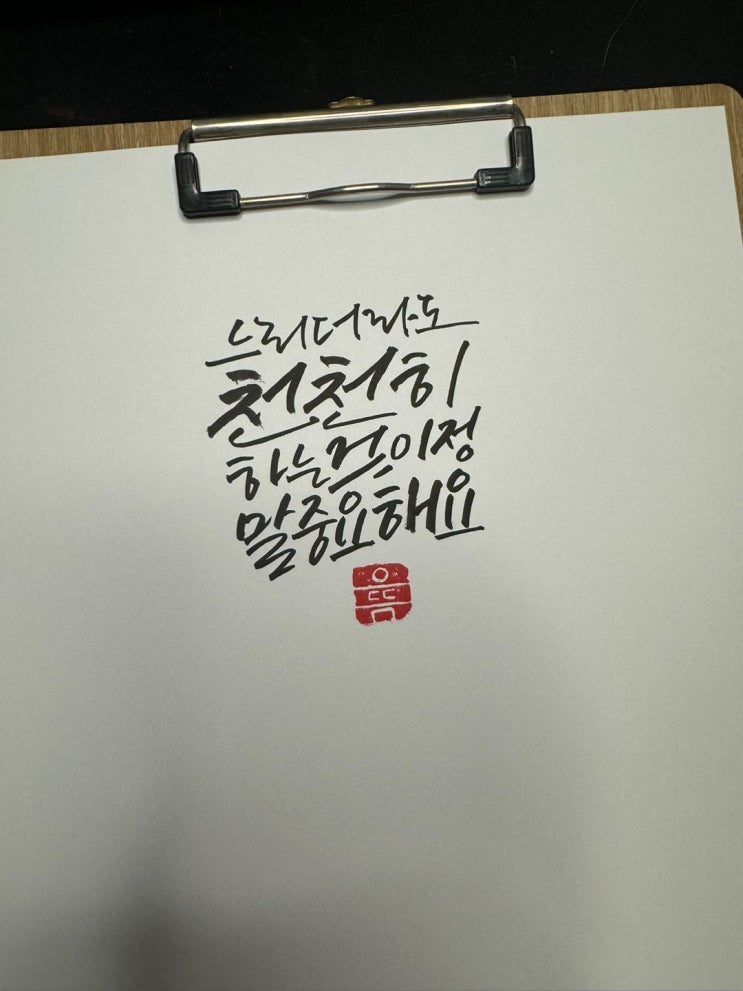 느리더라도
천천히
하는것이정
말중요해요